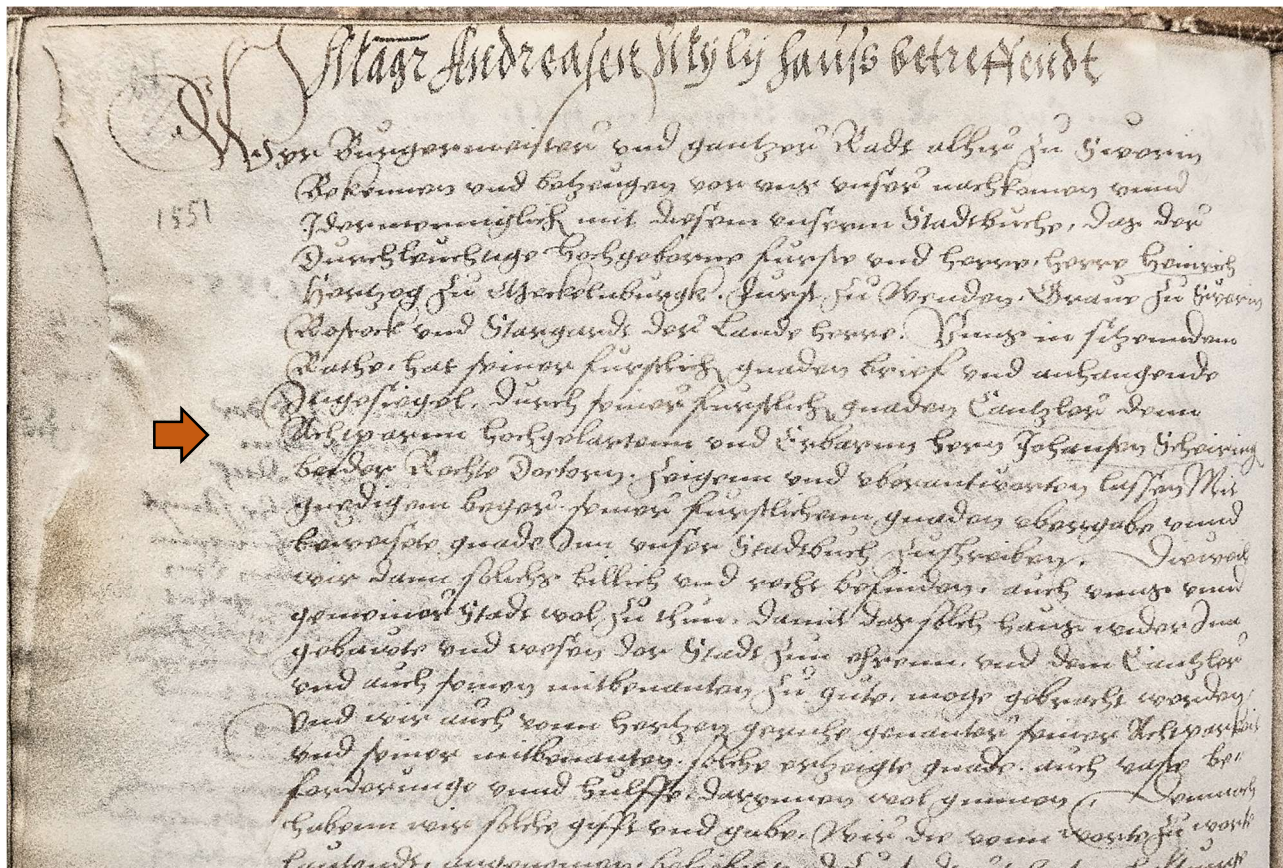 Magr Andreasen Mylij hauss betreffendt
Wyr Burgermeister vnd gantzer Radt alhir zu Swerin
1551
Bekennen vnd betzeugen vor vns vnser nachkomen vnnd
Idermenniglich mit diesem vnserm Stadtbuche, das der
Durchleuchtige Hochgeborne furste vnd herre, herre Heinrich
Hertzog zu Meckelnburgk. Furst zu Wenden. Graue zu Swerin
Rostock vnd Stargardt der Lande herre. Vnns in sitzenndem
Rathe, hat seiner furstlich gnaden brief vnd anhangende
Ingesiegel, durch seiner furstlich gnaden Cantzler denn
Achtparnn hochgelartenn vnd Erbarnn hern Johansen Scheiring
beider Rechte Doctorn. zeigenn vnd vberantwurten lassen Mit
gnedigem beger seiner furstlichenn gnaden vbergabe vnnd
beweisete gnade Inn vnser Stadtbuch zuschreiben. Dieweil
wir dann solichs billich vnd recht befinden, auch vnns vnnd
gemeiner Stadt wol zu thun. damit das solch haus wider Inn
gebawte vnd wesen der Stadt zun ehrenn, vnd dem Cantzler
vnd auch seinen mitbenanten zu gute, moge gebracht werden,
Vnd wir auch vonn hertzen gerne genanter seiner Achtparkeit
vnd seiner mitbenanten, solche ertzeigte gnade, auch vaste be-
forderunge vnnd hulffe, darynnen wol gunnen, Demnach
habenn wir solche gifft vnd gabe, Wie die vonn worte zu wort
lautendt, angenommen